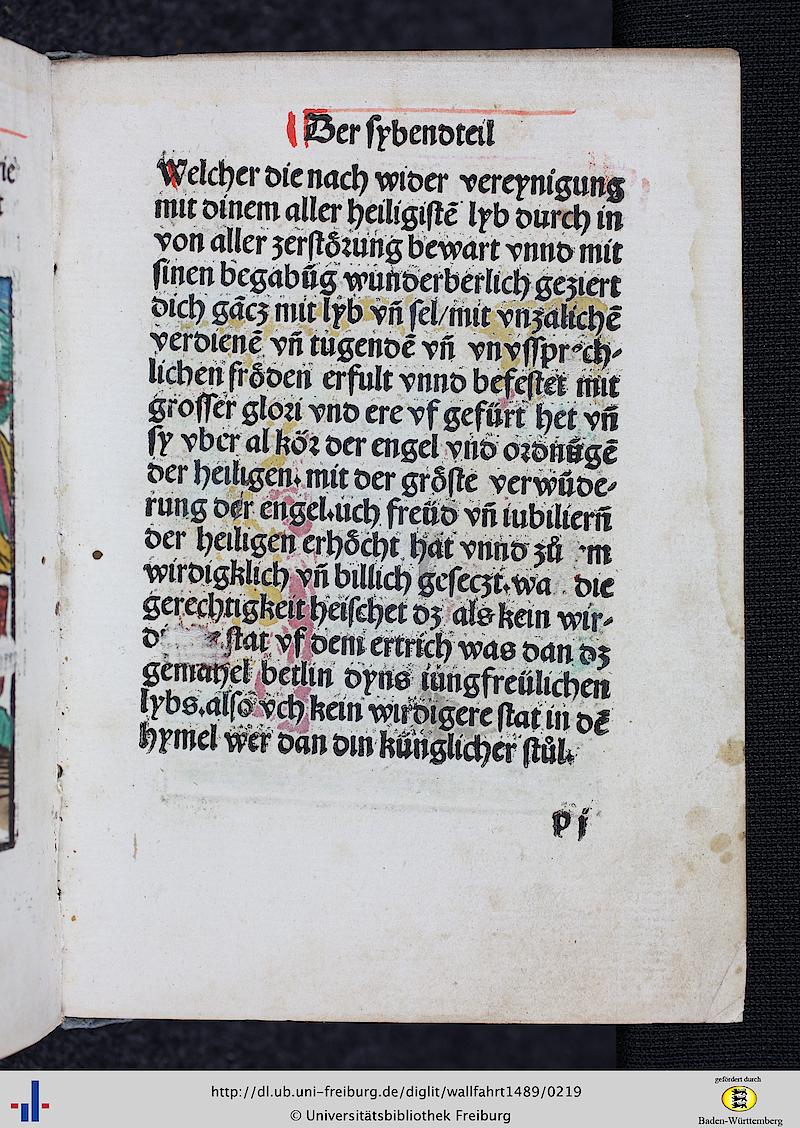 Der sybendteil
Welcher die nach wider vereynigung
mit dinem aller heiligistē lyb durch in
von aller zerstörung bewart vnnd mit
sinen begabūg wunderberlich geziert
dich gācz mit lyb vñ sel/mit vnzalichē
verdienē vñ tugendē vñ
lichen fröden erfult vnnd befestet mit
grosser glori vnd ere vf gefürt het vñ
sy vber al kör der engel vnd ordnūgē
der heiligen. mit der gröste verwūde-
rung der engel.uch freüd vñ iubilierñ
der heiligen erhöcht hat vnnd zů
wirdigklich vñ billich geseczt.wa die
gerechtigkeit heischet dz als kein wir-
stat vf dem ertrich was dan dz
gemahel betlin dyns iungfreülichen
lybs.also vch kein wirdigere stat in dē
hymel wer dan din künglicher stůl.
p j
http://dl.ub.uni-freiburg.de/diglit/wallfahrt1489/0219
© Universitätsbibliothek Freiburg
gefördert durch
Baden-Württemberg